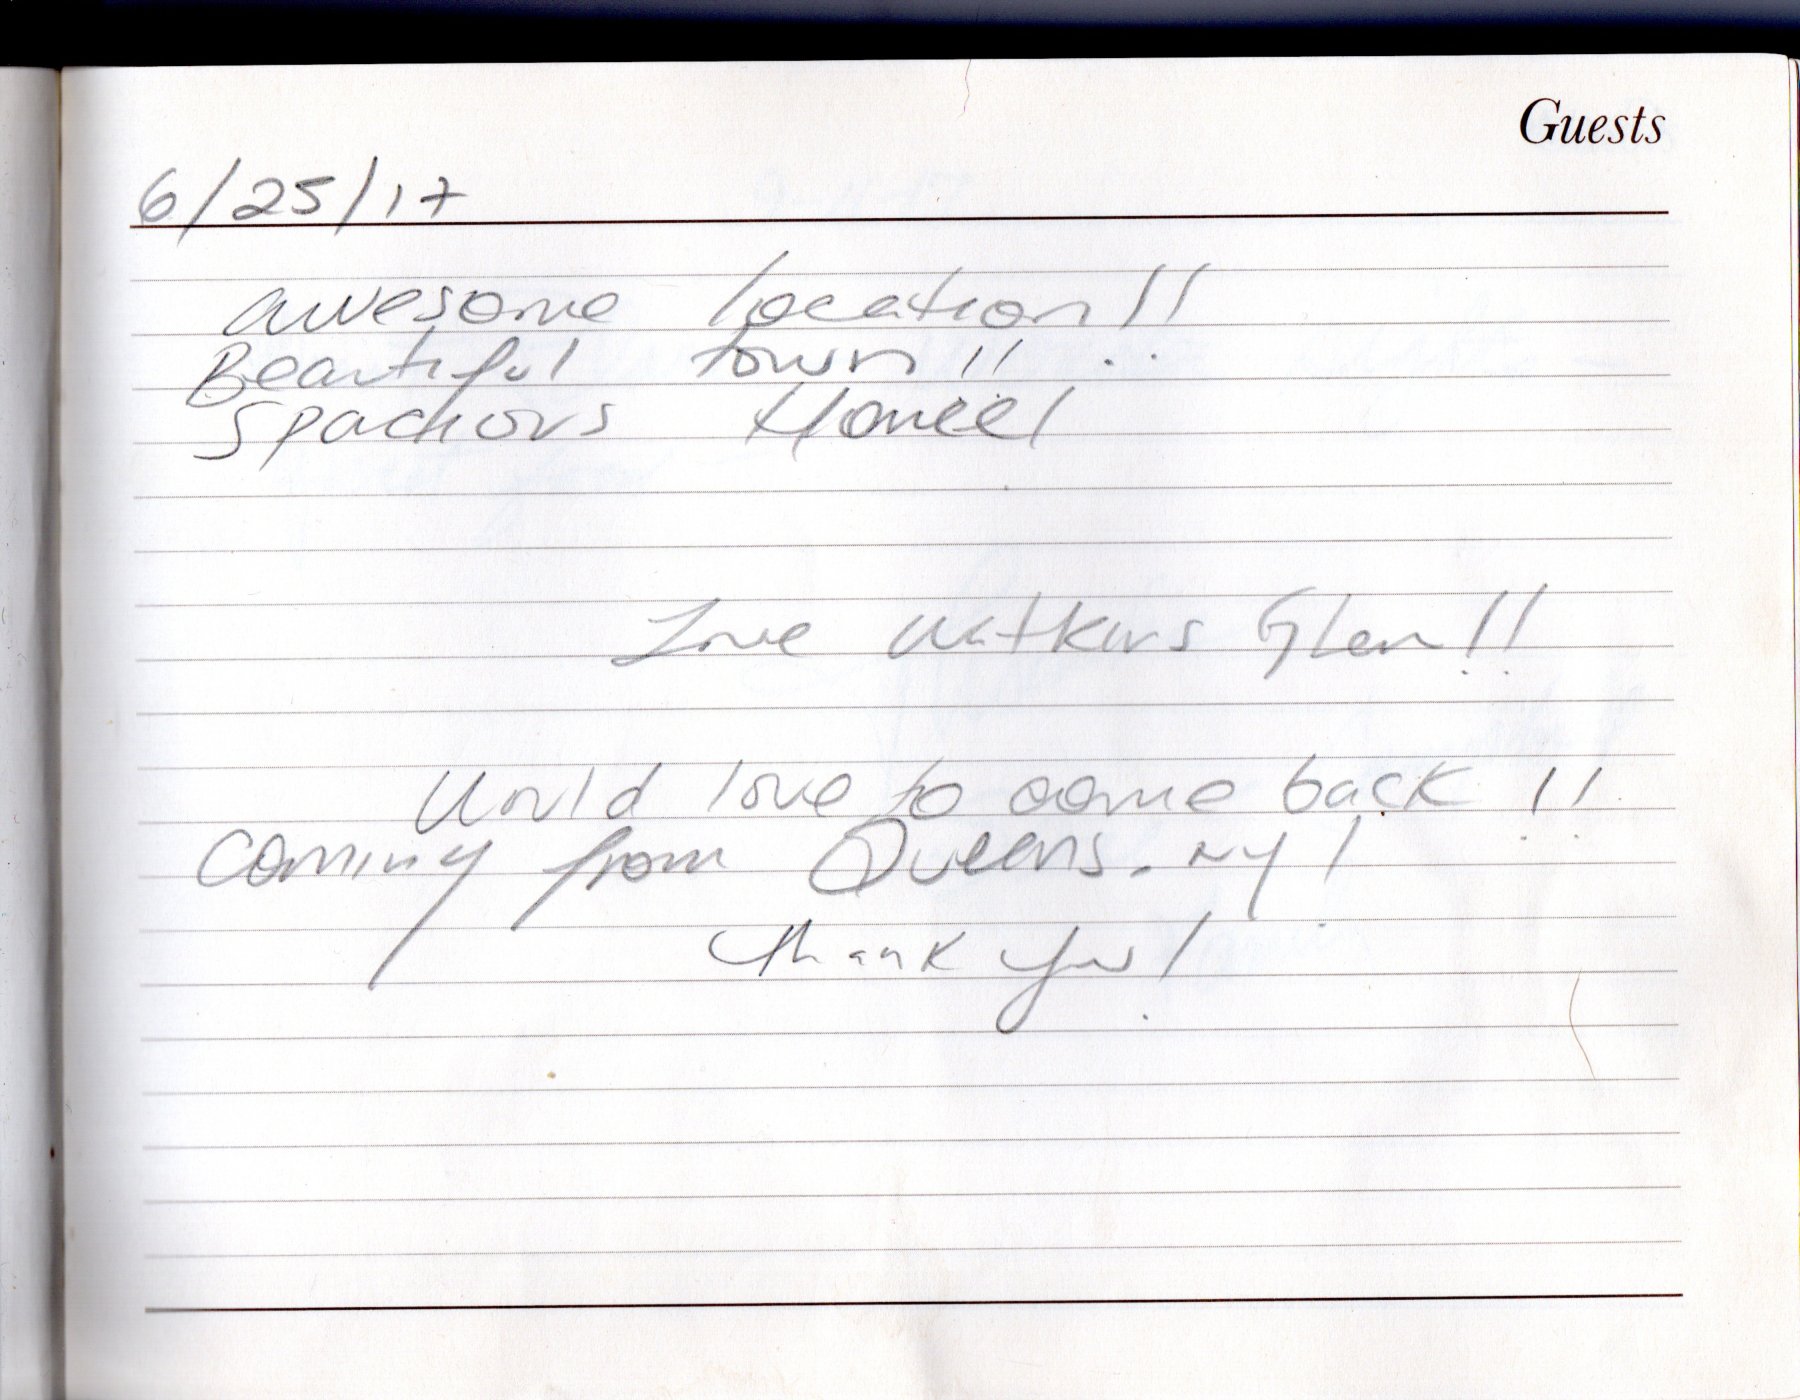 Guests
6/25/17
awesome location!!
Beautiful town!!
Spacious Home!!
Love Watkins Glen!!
Would love to come back !!
Coming from Queens, NY!
Thank you!